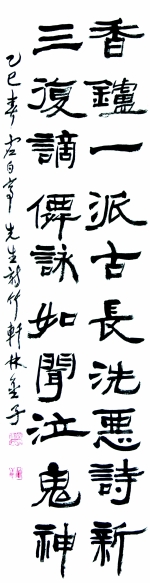 香鑪一派古長洗惡詩新
三復謫僊詠如聞泣鬼神
乙巳春 先生詩 竹軒 林金子